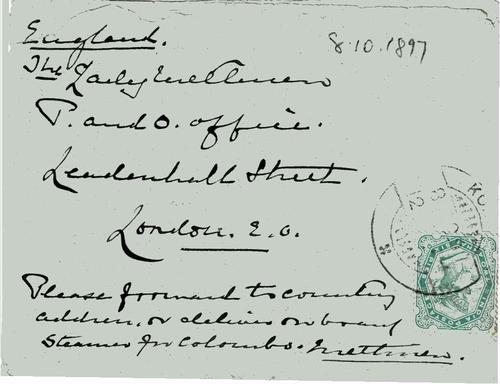 England.
8.10.1897
The Lady Methuen
P. and O. office.
Leadenhall Street.
London. E.C.
Please forward to country
address, or deliver on board
Steamer for Colombo. Methuen.